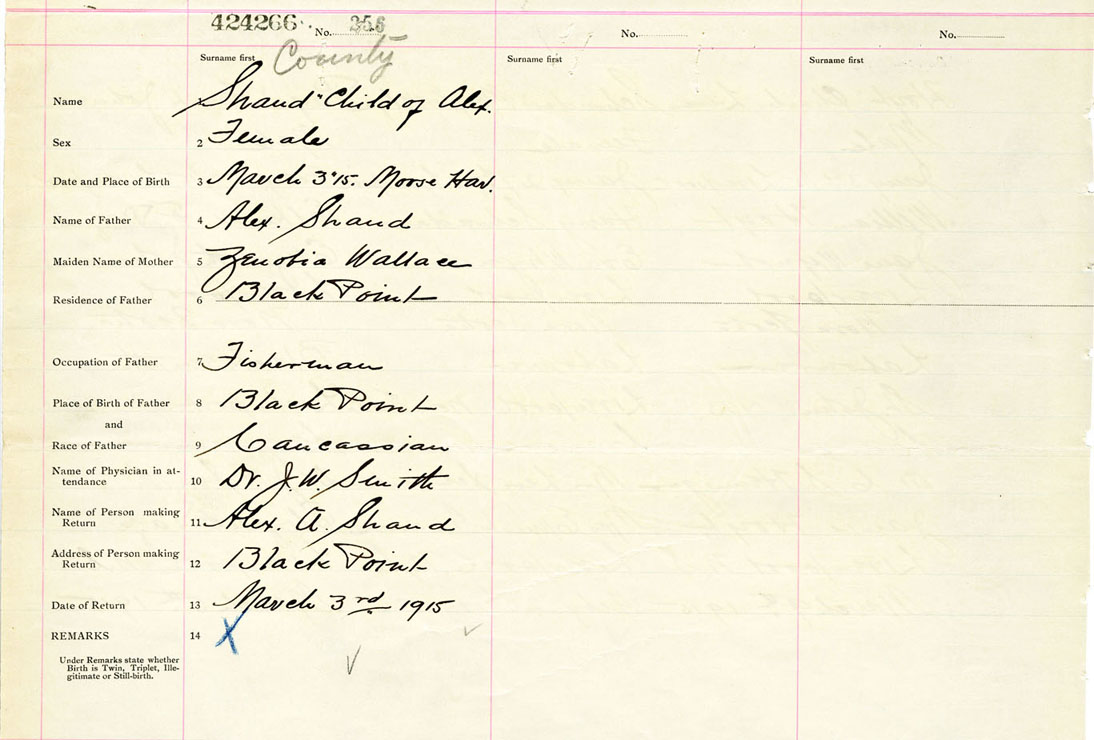 424266 No. 356 No. No.
Surname first County Surname first Surname first
Name 1 Shand "Child of Alex.
Sex 2 Female
Date and Place of Birth 3 March 3" 15. Moose Har.
Name of Father 4 Alex. Shand
Maiden Name of Mother 5 Zenobia Wallace
Residence of Father 6 Black Point
Occupation of Father 7 Fisherman
Place of Birth of Father 8 Black Point
and
Race of Father 9 Caucassian
Name of Physician in at-
tendance 10 Dr. J. W. Smith
Name of Person making
Return 11 Alex. A. Shand
Address of Person making
Return 12 Black Point
Date of Return 13 March 3rd 1915
REMARKS 14 X
Under Remarks state whether
Birth is Twin, Triplet, Ille-
gitimate or Still-birth.